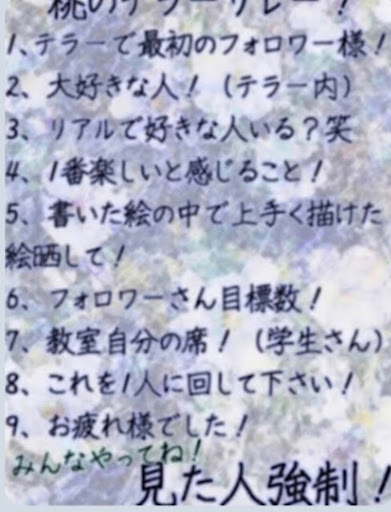 桃のテラーリレー！
1、テラーで最初のフォロワー様！
2、大好きな人！（テラー内）
3、リアルで好きな人いる？笑
4、1番楽しいと感じること！
5、書いた絵の中で上手く描けた
絵晒して！
6、フォロワーさん目標数！
7、教室自分の席！（学生さん）
8、これを1人に回して下さい！
9、お疲れ様でした！
みんなやってね！
見た人強制！